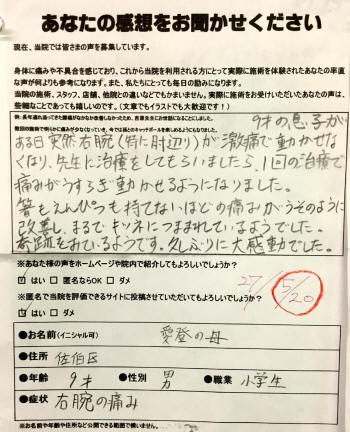 あなたの感想をお聞かせください
現在、当院では皆さまの声を募集しています。
身体に痛みや不具合を感じており、これから当院を利用される方にとって実際に施術を体験されたあなたの率直
な声が何よりも参考になります。また、私たちにとっても毎日の励みになります。
当院の施術、スタッフ、店舗、他院との違いなどでもかまいません。実際に施術をお受けしていただいたあなたの声は、
些細なことであっても嬉しいのです。（文章でもイラストでも大歓迎です！）
9才の息子が
ある日突然右腕（特に肘辺り）が激痛で動かせな
くなり、先生に治療をしてもらいましたら、1回の治療で
痛みがうすらぎ動かせるようになりました。
箸もえんぴつも持てないほどの痛みがうそのように
改善し、まるでキツネにつままれているようでした。
奇跡をみているようです。久しぶりに大感動でした。
※あなた様の声をホームページや院内で紹介してもよろしいでしょうか？
はい □ 匿名ならOK □ ダメ
※匿名で当院を評価できるサイトに投稿させていただいてもよろしいでしょうか？
はい □ ダメ
27/5/20
●お名前（イニシャル可） 愛登の母
●住所 佐伯区
●年齢 9才 ●性別 男 ●職業 小学生
●症状 右腕の痛み
※お名前や年齢や住所など公開できる範囲で構いません。